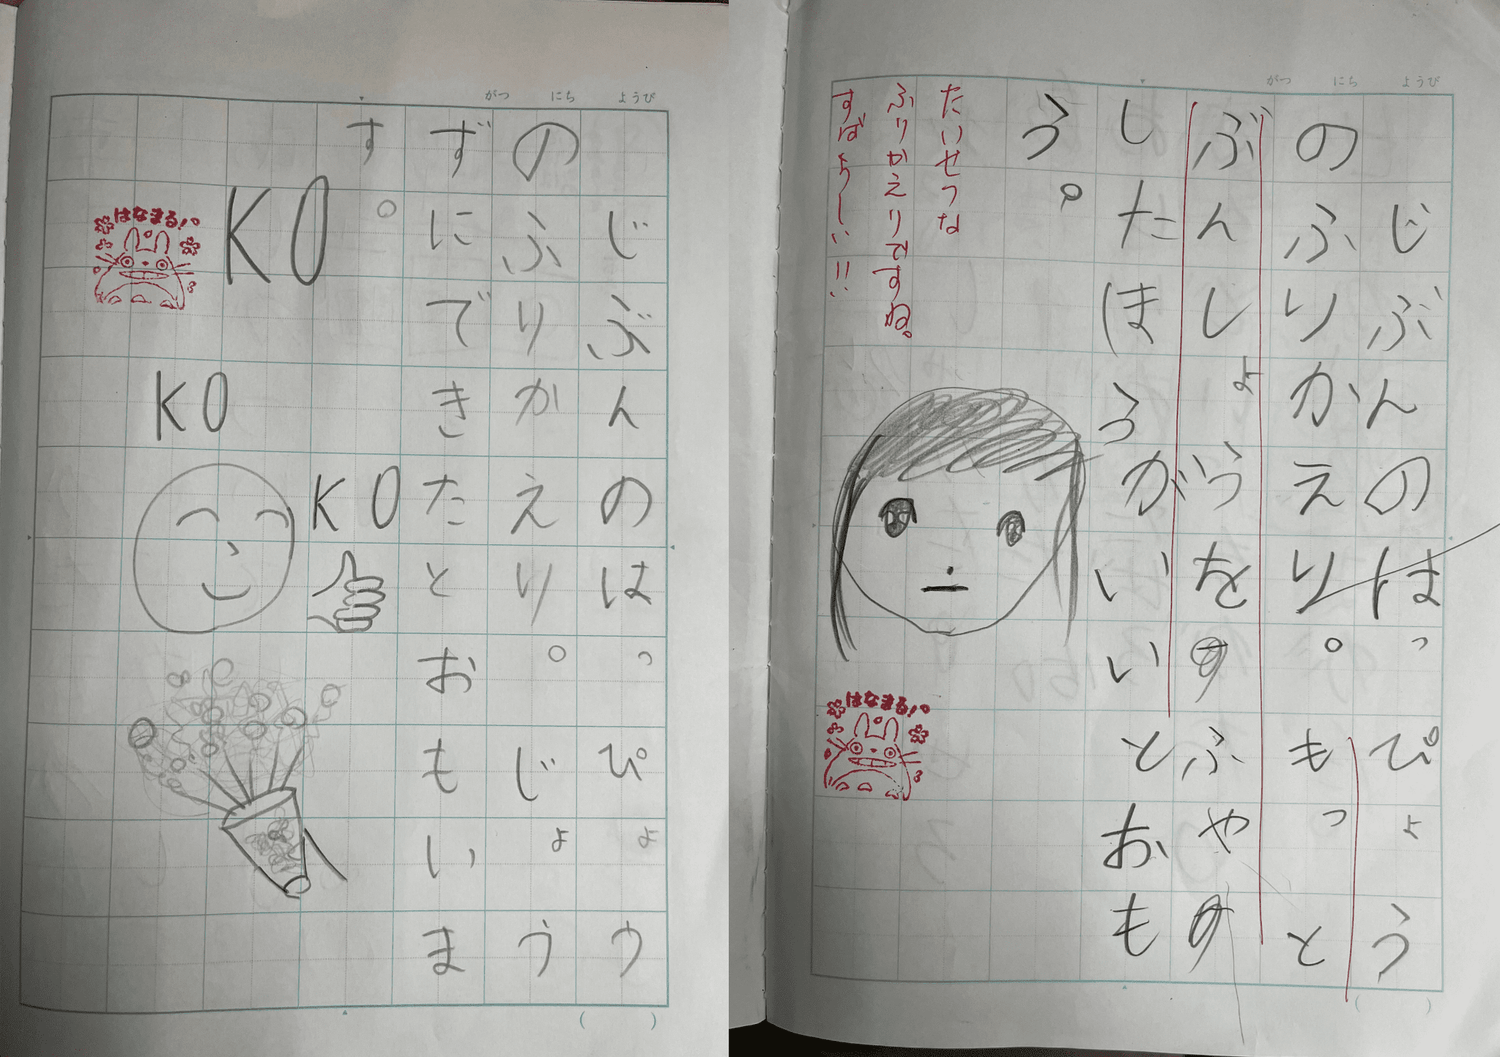 がつ にち ようび
じぶんのはっぴょう
のふりかえり。じょう
ずにできたとおもいま
す。
KO
KO
KO
はなまる!
がつ にち ようび
じぶんのはっぴょう
のふりかえり。もっと
ぶんしょうをすふやす
したほうがいいとおも
う。
たいせつな
ふりかえりですね。
すばらしーい!!
はなまる!